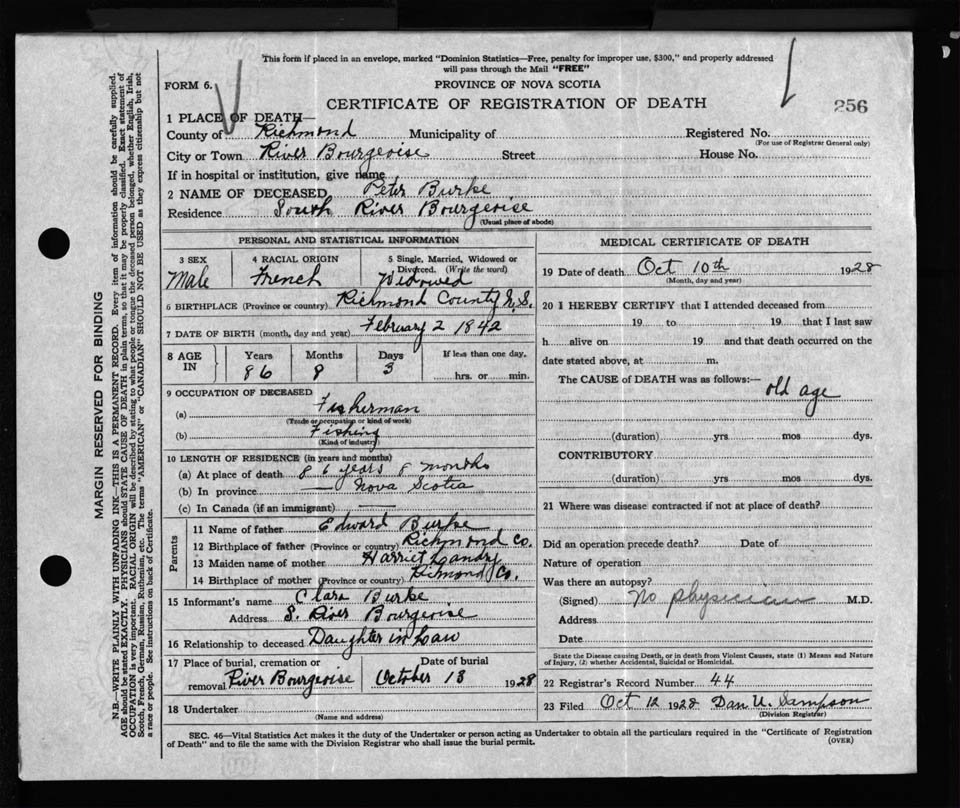 This form if placed in an envelope, marked "Dominion Statistics—Free, penalty for improper use, $300," and properly addressed
will pass through the Mail "FREE"
FORM 6.
PROVINCE OF NOVA SCOTIA
CERTIFICATE OF REGISTRATION OF DEATH
256
1 PLACE OF DEATH—
County of Richmond Municipality of Registered No.
(For use of Registrar General only)
City or Town River Bourgeoise Street House No.
If in hospital or institution, give name
2 NAME OF DECEASED, Peter Burke
Residence South River Bourgeoise
(Usual place of abode)
PERSONAL AND STATISTICAL INFORMATION
3 SEX 4 RACIAL ORIGIN 5 Single, Married, Widowed or
Divorced. (Write the word)
Male French Widowed
6 BIRTHPLACE (Province or country) Richmond County N.S.
7 DATE OF BIRTH (month, day and year) February 2 1842
8 AGE IN Years Months Days If less than one day,
86 8 3 hrs. or min.
9 OCCUPATION OF DECEASED
(a) Fisherman
(Trade or occupation or kind of work)
(b) Fishing
(Kind of industry)
10 LENGTH OF RESIDENCE (in years and months)
(a) At place of death 86 years 8 months
(b) In province — Nova Scotia
(c) In Canada (if an immigrant)
Parents
11 Name of father Edward Burke
12 Birthplace of father (Province or country) Richmond Co.
13 Maiden name of mother Harriet Landry
14 Birthplace of mother (Province or country) Rimond Co.
15 Informant's name Clara Burke
Address S. River Bourgeoise
16 Relationship to deceased Daughter in Law
17 Place of burial, cremation or Date of burial
removal River Bourgeoise October 13 1928
18 Undertaker
(Name and address)
MEDICAL CERTIFICATE OF DEATH
19 Date of death Oct 10th 1928
(Month, day and year)
20 I HEREBY CERTIFY that I attended deceased from
19 to 19 that I last saw
h alive on 19 and that death occurred on the
date stated above, at m.
The CAUSE of DEATH was as follows:— old age
(duration) yrs mos dys.
CONTRIBUTORY
(duration) yrs mos dys.
21 Where was disease contracted if not at place of death?
Did an operation precede death? Date of
Nature of operation
Was there an autopsy?
(Signed) No physician M.D.
Address
Date
State the Disease causing Death, or in death from Violent Causes, state (1) Means and Nature
of Injury, (2) whether Accidental, Suicidal or Homicidal.
22 Registrar's Record Number 44
23 Filed Oct 12 1928 Dan U. Sampson
(Division Registrar)
SEC. 46—Vital Statistics Act makes it the duty of the Undertaker or person acting as Undertaker to obtain all the particulars required in the "Certificate of Registration
of Death" and to file the same with the Division Registrar who shall issue the burial permit. (OVER)
MARGIN RESERVED FOR BINDING
N.B.—WRITE PLAINLY WITH UNFADING INK—THIS IS A PERMANENT RECORD. Every item of information should be carefully supplied.
AGE should be stated EXACTLY. PHYSICIANS should STATE CAUSE OF DEATH in plain terms, so that it may be properly classified. Exact statement of
OCCUPATION is very important. RACIAL ORIGIN will be described by stating to what people or tongue the deceased person belonged, whether English, Irish,
Scotch, French, German, Russian, Ruthenian, etc. The terms "AMERICAN" or "CANADIAN" SHOULD NOT BE USED as they express citizenship but not
a race or people. See instructions on back of Certificate.